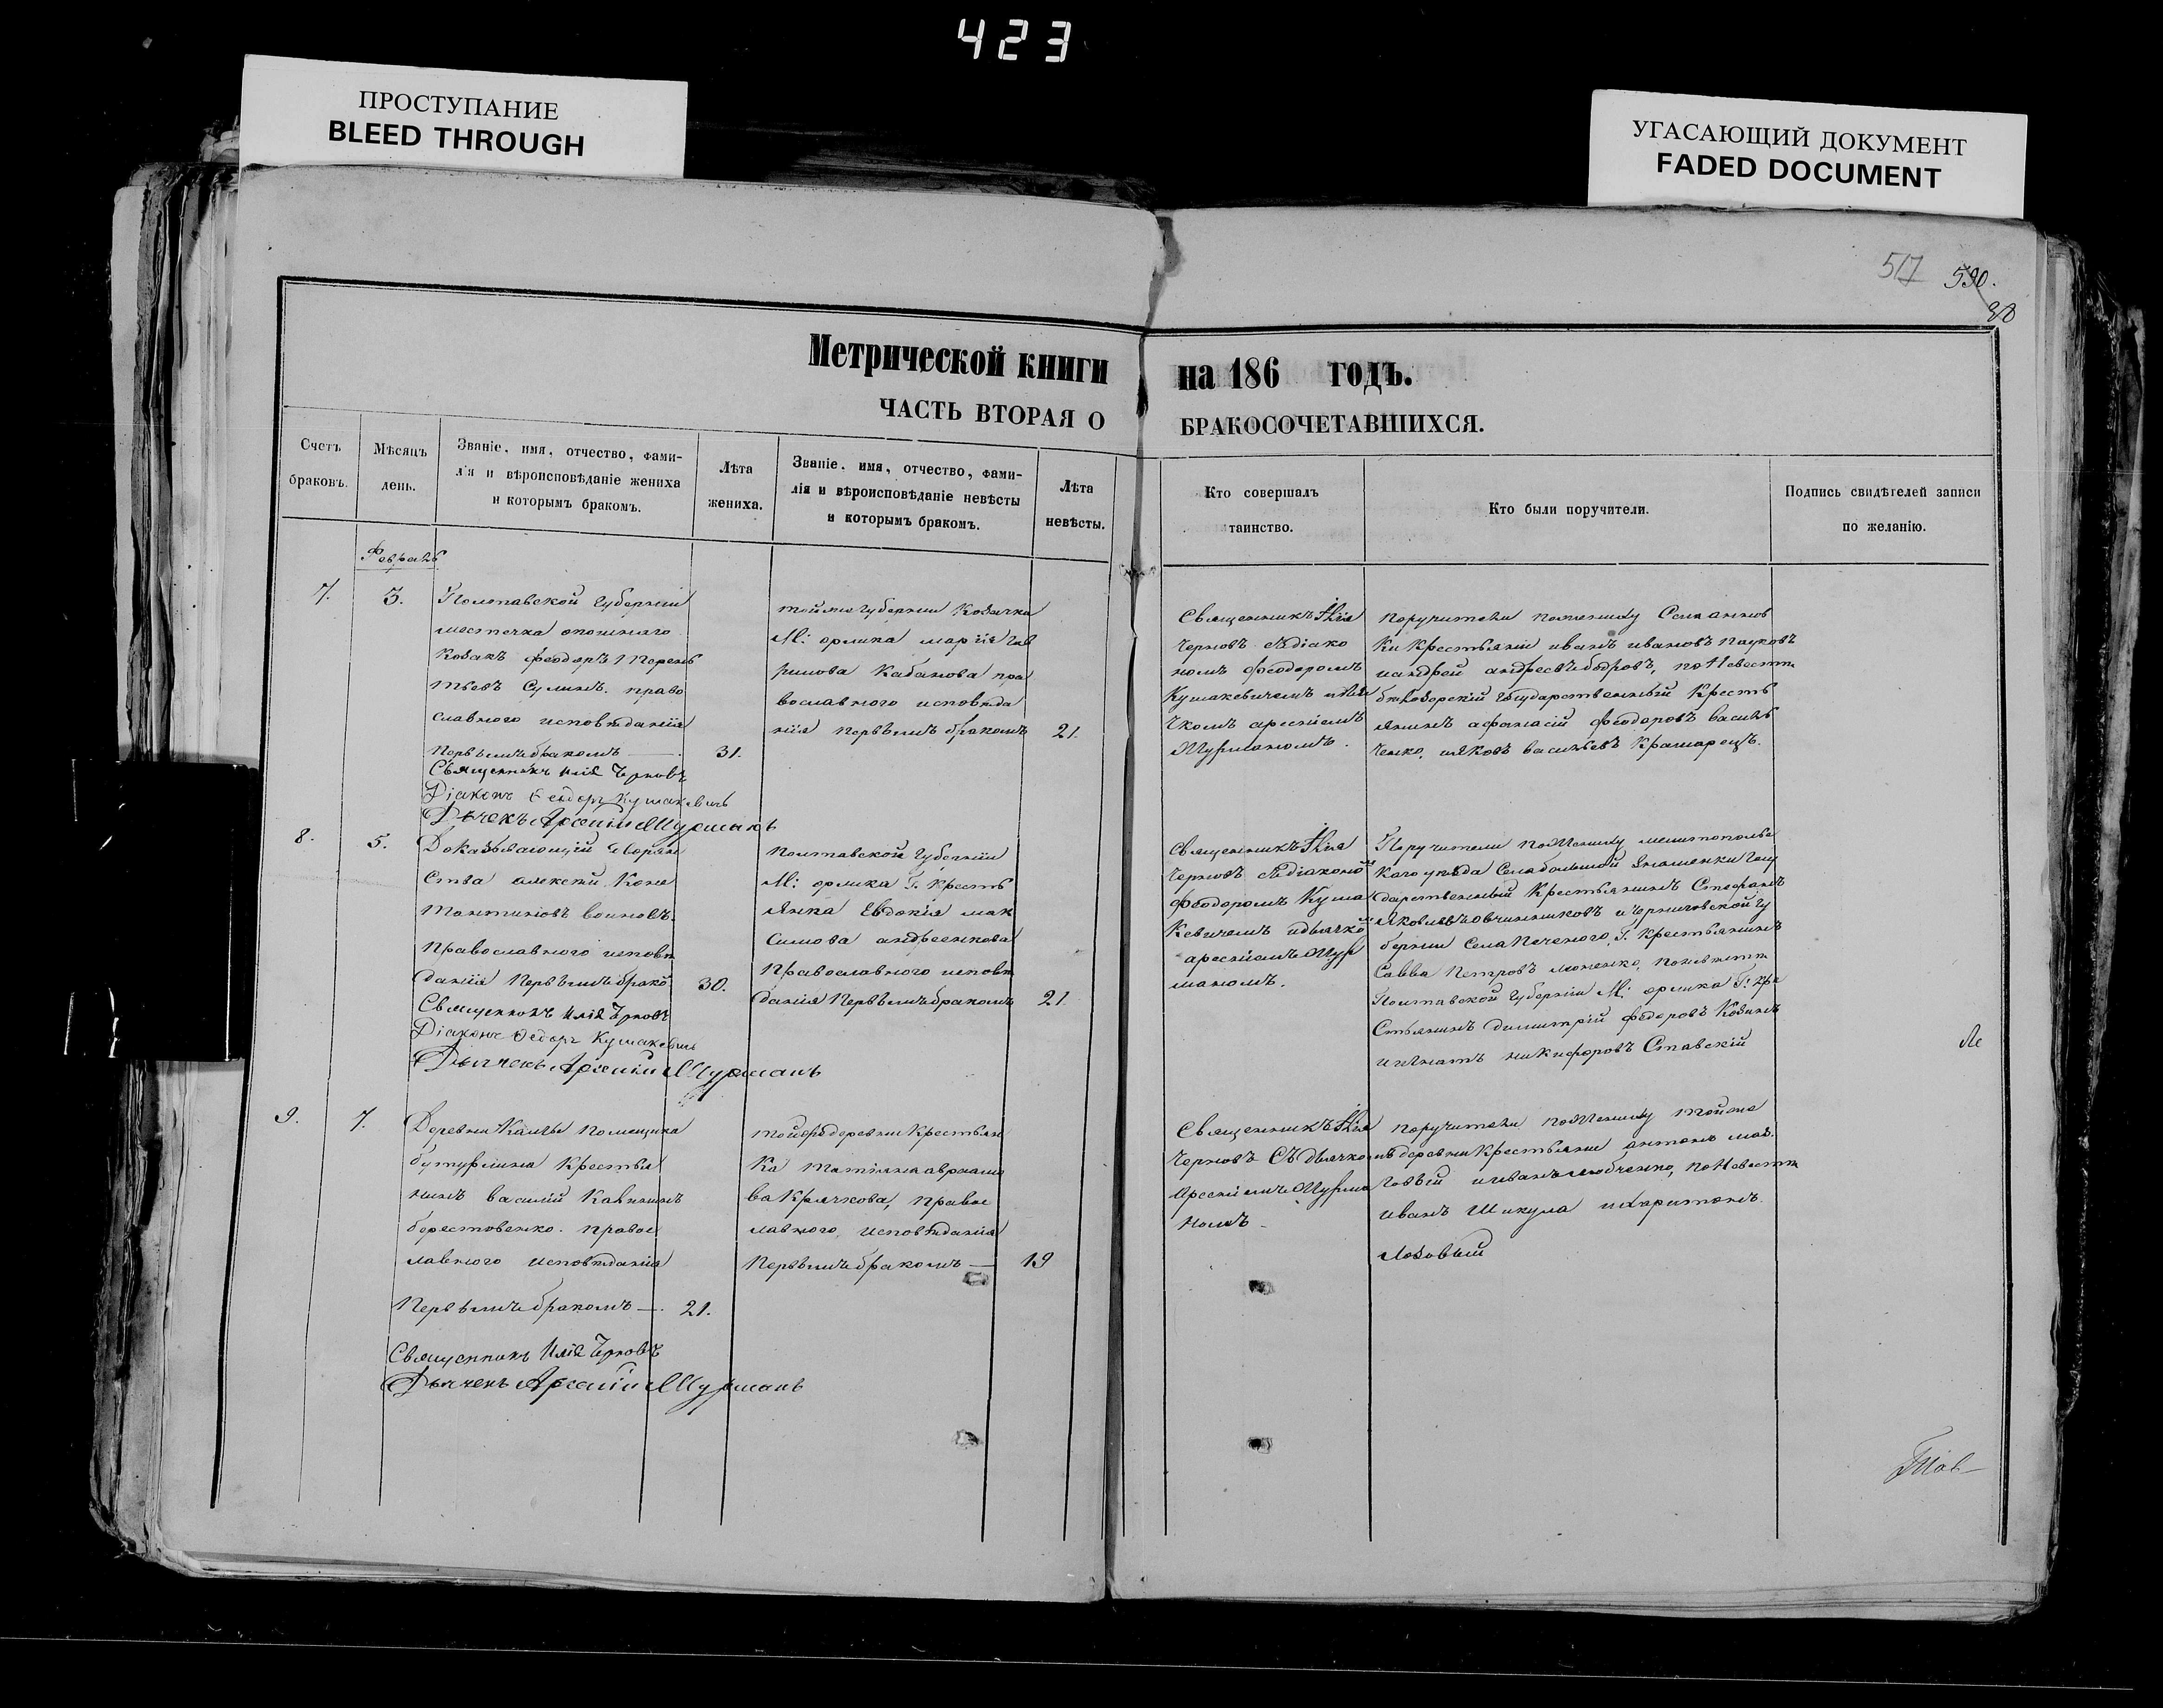 423
ПРОСТУПАНИЕ
BLEED THROUGH
УГАСАЮЩИЙ ДОКУМЕНТ
FADED DOCUMENT
517 590.
Метрической книги на 186 годъ.
ЧАСТЬ ВТОРАЯ О БРАКОСОЧЕТАВШИХСЯ.
Счетъ
браковъ.
Мѣсяцъ
день.
Званіе, имя, отчество, фами-
лія и вѣроисповѣданіе жениха
и которымъ бракомъ.
Лѣта
жениха.
Званіе, имя, отчество, фами-
лія и вѣроисповѣданіе невѣсты
и которымъ бракомъ.
Лѣта
невѣсты.
Кто совершалъ
таинство.
Кто были поручители.
Подпись свидѣтелей записи
по желанію.
Февраль
7.
3.
Полтавской Губерніи
местечка опошняго
Козакъ феодоръ Терень
тьевъ Сулимъ. право
славного исповѣданія
первымъ бракомъ —.
31.
Священникъ Илія Черновъ
Діаконъ Ѳеодоръ Кушакевичъ
Дьячекъ Арсеній Мурманъ
тойже губерніи Козачка
М: орлика марія Гав
рилова Кабанова пра
вославного исповѣда
нія первымъ бракомъ
21.
Священникъ Илія
Черновъ съ діако
номъ феодоромъ
Кушакевичемъ и дья
чкомъ арсеніемъ
Мурманомъ.
поручители по жениху Села аннов
ки крестьяне иванъ ивановъ пауковъ
и андрей андреевъ бодровъ, по Невесте
белозерскій Государственный Кресть
янинъ афанасій феодоровъ василь
ченко, и яковъ васильевъ Крамарецъ.
8.
5.
Доказывающій дворян
ства алексѣй Конс
тантиновъ воиновъ.
Православного исповѣ
данія Первымъ брако
30.
Священникъ Илія Чрновъ
Діаконъ Ѳедоръ Кушакевичъ
Дьячекъ Арсеній Мурманъ
Полтавской Губерніи
М: орлика Г. кресть
янка Евдокія мак
симова андреенкова
Православного исповѣ
данія Первымъ бракомъ
21.
Священникъ Илія
Черновъ съ діаконо
феодоромъ Куша
Кевичемъ и дьячко
арсеніемъ Мур
маномъ.
Поручители по Жениху мелитополь
каго уѣзда Села большой Знаменки Госу
дарственный Крестьянинъ Стефанъ
Яковлевъ овчинниковъ и Черниговской Гу
берніи Села Печеного, Г. Крестьянинъ
Савва Петровъ мененко, По невѣстѣ
Полтавской Губерніи М: орлика Г: кре
стьянинъ Димитрій федоровъ Козинъ
и игнатъ никифоровъ Ставскій
9.
7.
Деревни Камлы помещика
бутурлина крестья
нинъ василій Кавинъ
берестовенко. правос
лавного исповѣданія
Первымъ бракомъ —.
21.
Священникъ Илія Чрновъ
Дьячекъ Арсеній Мурманъ
тойже деревни Крестьян
ка татіяна авраамо
ва Крячкова, правос
лавного исповѣданія
Первымъ бракомъ —
19
Священникъ Илія
Черновъ Съ дьячком
Арсеніемъ Мурма
номъ —
поручители по Жениху тойже
деревни крестьяне антонъ
и иванъ любченко, по Невесте
иванъ Шикула и харитонъ
Лозовый